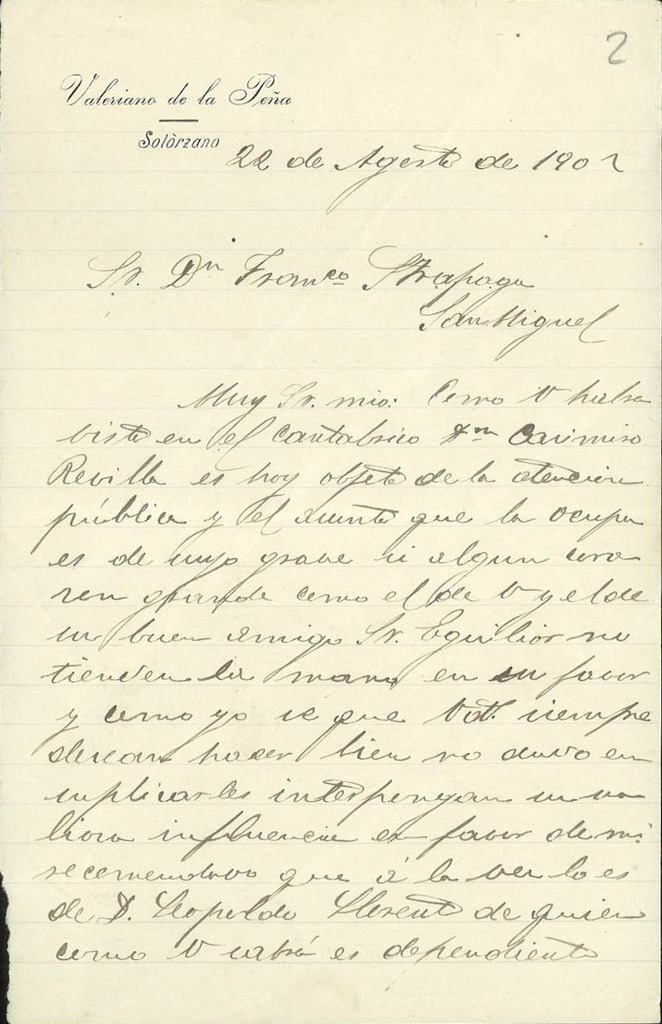 2
Valeriano de la Peña
Solórzano
22 de Agosto de 1902
Sr. Dn Franco
San Miguel
Muy Sr. mio: Como V habra
visto en el cantabrico Dn Casimiro
Revilla es hoy objeto de la atencion
pública y el asunto que la ocupa
es de suyo grave si algun cora
zon grande como el de V y el de
su buen amigo Sr. Eguilior no
tienden la mano en su favor
y como yo se que Vds. siempre
desean hacer bien no dudo en
suplicarles interpongan su va
liosa influencia en favor de mi
recomendado que á la vez lo es
de D. Leopoldo Llorente de quien
como V sabrá es dependiente